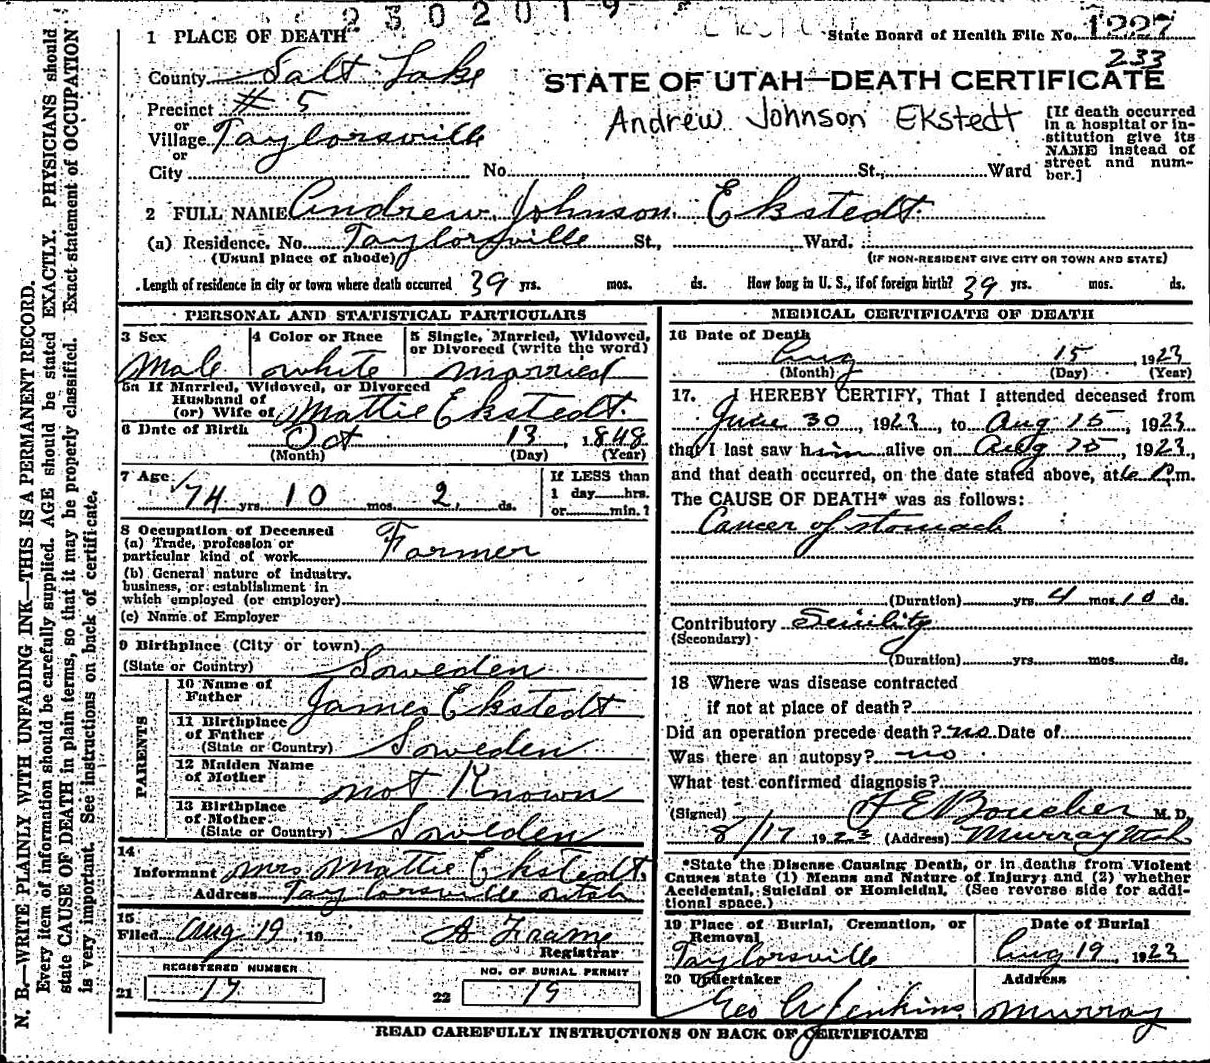 2302019
State Board of Health File No. 1227
233
1 PLACE OF DEATH
County Salt Lake
STATE OF UTAH—DEATH CERTIFICATE
Precinct # 5
or
Village Taylorsville
or
City No. St., Ward
Andrew Johnson Ekstedt
[If death occurred in a hospital or in-
stitution give its
NAME instead of
street and num-
ber.]
2 FULL NAME Andrew Johnson Ekstedt
(a) Residence. No. Taylorsville St., Ward.
(Usual place of abode) (IF NON-RESIDENT GIVE CITY OR TOWN AND STATE)
Length of residence in city or town where death occurred 39 yrs. mos. ds. How long in U. S., if of foreign birth? 39 yrs. mos. ds.
PERSONAL AND STATISTICAL PARTICULARS
3 Sex 4 Color or Race 5 Single, Married, Widowed,
or Divorced (write the word)
Male white married
5a If Married, Widowed, or Divorced
Husband of
(or) Wife of Mattie Ekstedt.
6 Date of Birth Oct 13, 1848
(Month) (Day) (Year)
7 Age 74 yrs. 10 mos. 2 ds.
If LESS than
1 day—hrs.
or—min.?
8 Occupation of Deceased
(a) Trade, profession or
particular kind of work Farmer
(b) General nature of industry.
business, or establishment in
which employed (or employer)
(c) Name of Employer
9 Birthplace (City or town)
(State or Country) Sweden
PARENTS
10 Name of
Father James Ekstedt
11 Birthplace
of Father
(State or Country) Sweden
12 Maiden Name
of Mother not Known
13 Birthplace
of Mother
(State or Country) Sweden
14
Informant Mrs Mattie Ekstedt.
Address Taylorsville Utah
15
Filed Aug 19, 19 A Frame
Registrar
REGISTERED NUMBER NO. OF BURIAL PERMIT
21 19 22 19
MEDICAL CERTIFICATE OF DEATH
16 Date of Death
Aug 15, 1923
(Month) (Day) (Year)
17. I HEREBY CERTIFY, That I attended deceased from
June 30, 1923, to Aug 15, 1923
that I last saw him alive on Aug 15, 1923,
and that death occurred, on the date stated above, at 6 P.m.
The CAUSE OF DEATH* was as follows:
Cancer of stomach
(Duration) yrs. 4 mos. 10 ds.
Contributory Senility
(Secondary)
(Duration) yrs. mos. ds.
18 Where was disease contracted
if not at place of death?
Did an operation precede death? no Date of
Was there an autopsy? no
What test confirmed diagnosis?
(Signed) H E Boucher M. D.
8/17 1923 (Address) Murray Utah
*State the Disease Causing Death, or in deaths from Violent
Causes state (1) Means and Nature of Injury; and (2) whether
Accidental, Suicidal or Homicidal. (See reverse side for addi-
tional space.)
19 Place of Burial, Cremation, or
Removal
Date of Burial
Taylorsville Aug 19, 1923
20 Undertaker Address
Geo A Jenkins Murray
READ CAREFULLY INSTRUCTIONS ON BACK OF CERTIFICATE
N. B.—WRITE PLAINLY WITH UNFADING INK—THIS IS A PERMANENT RECORD.
Every item of information should be carefully supplied. AGE should be stated EXACTLY. PHYSICIANS should
state CAUSE OF DEATH in plain terms, so that it may be properly classified. Exact statement of OCCUPATION
is very important. See instructions on back of certificate.